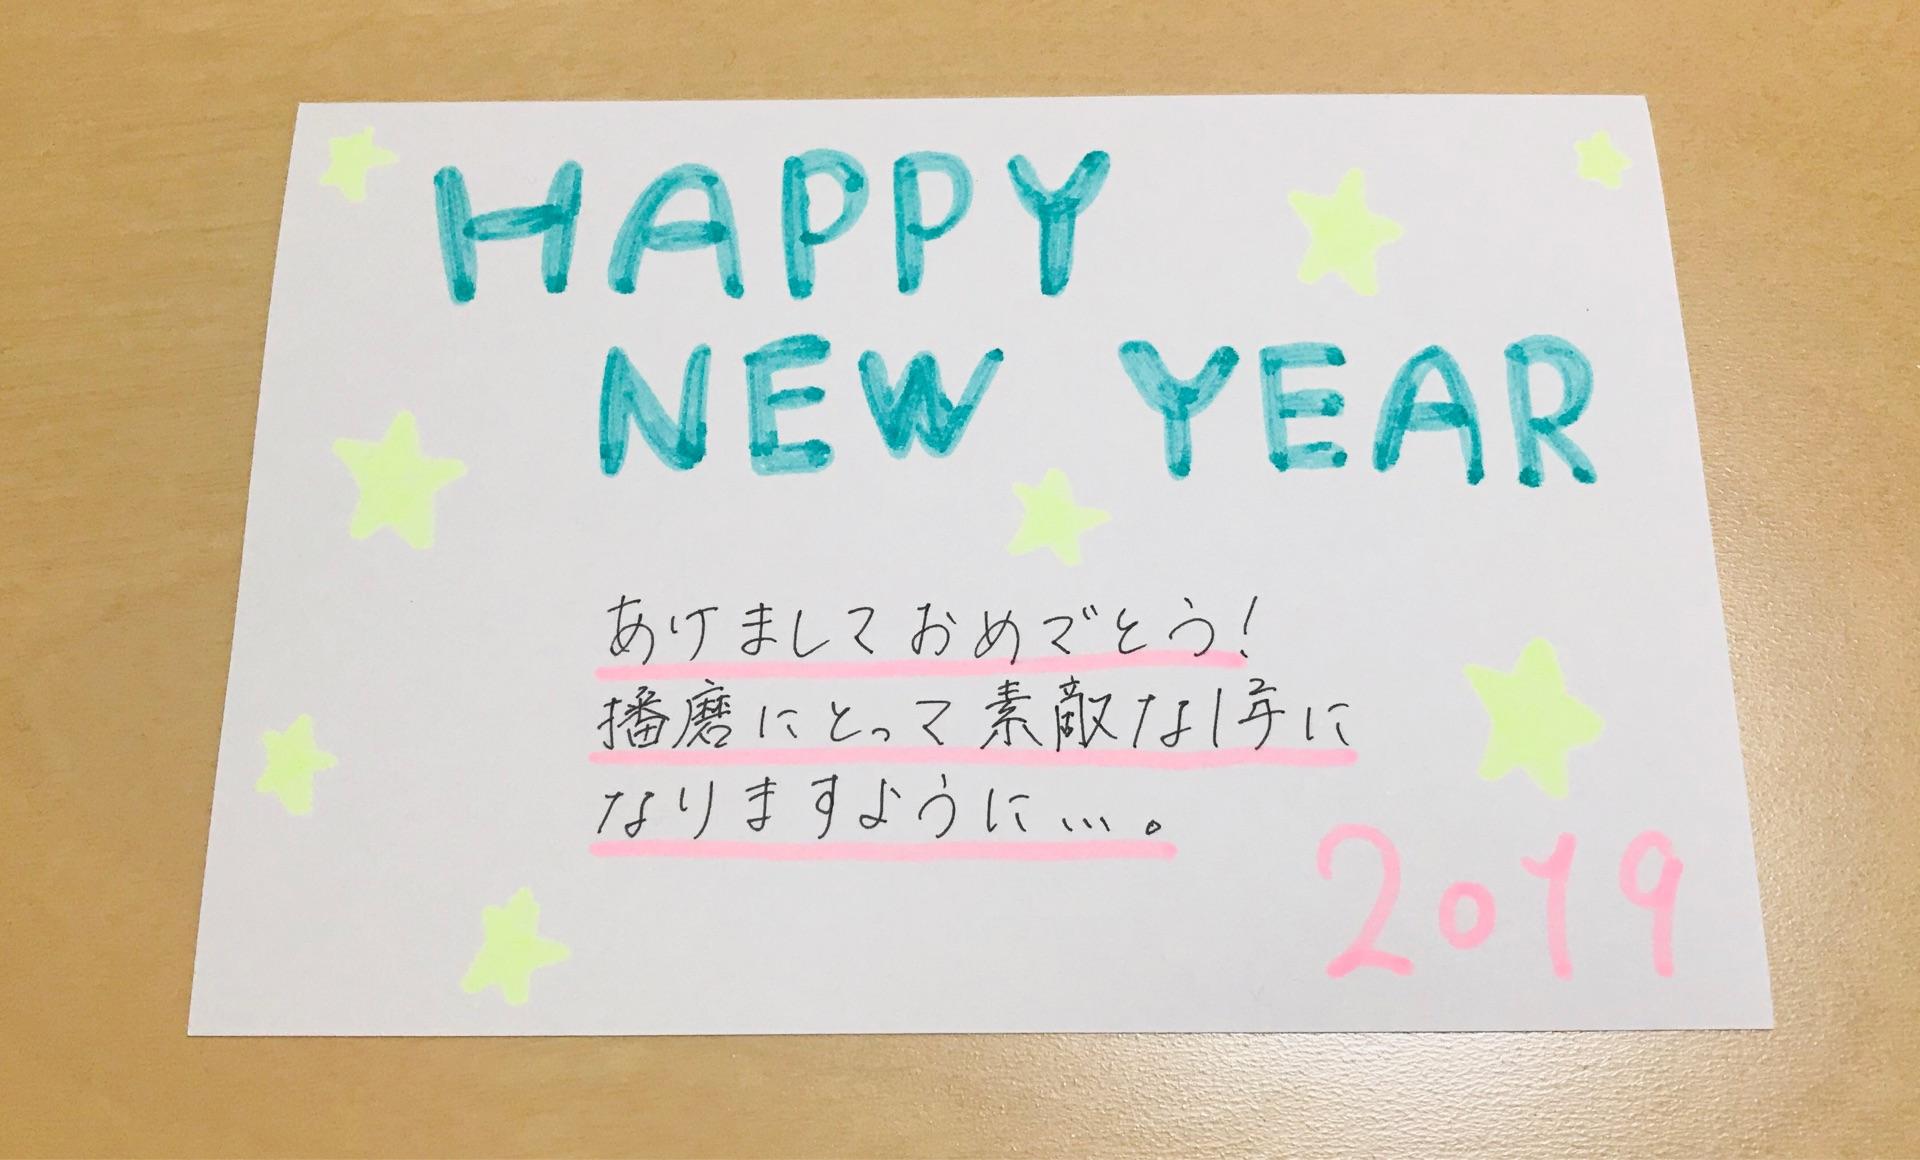 HAPPY
NEW YEAR
あけましておめでとう!
播磨にとって素敵な1年に
なりますように…。
2019